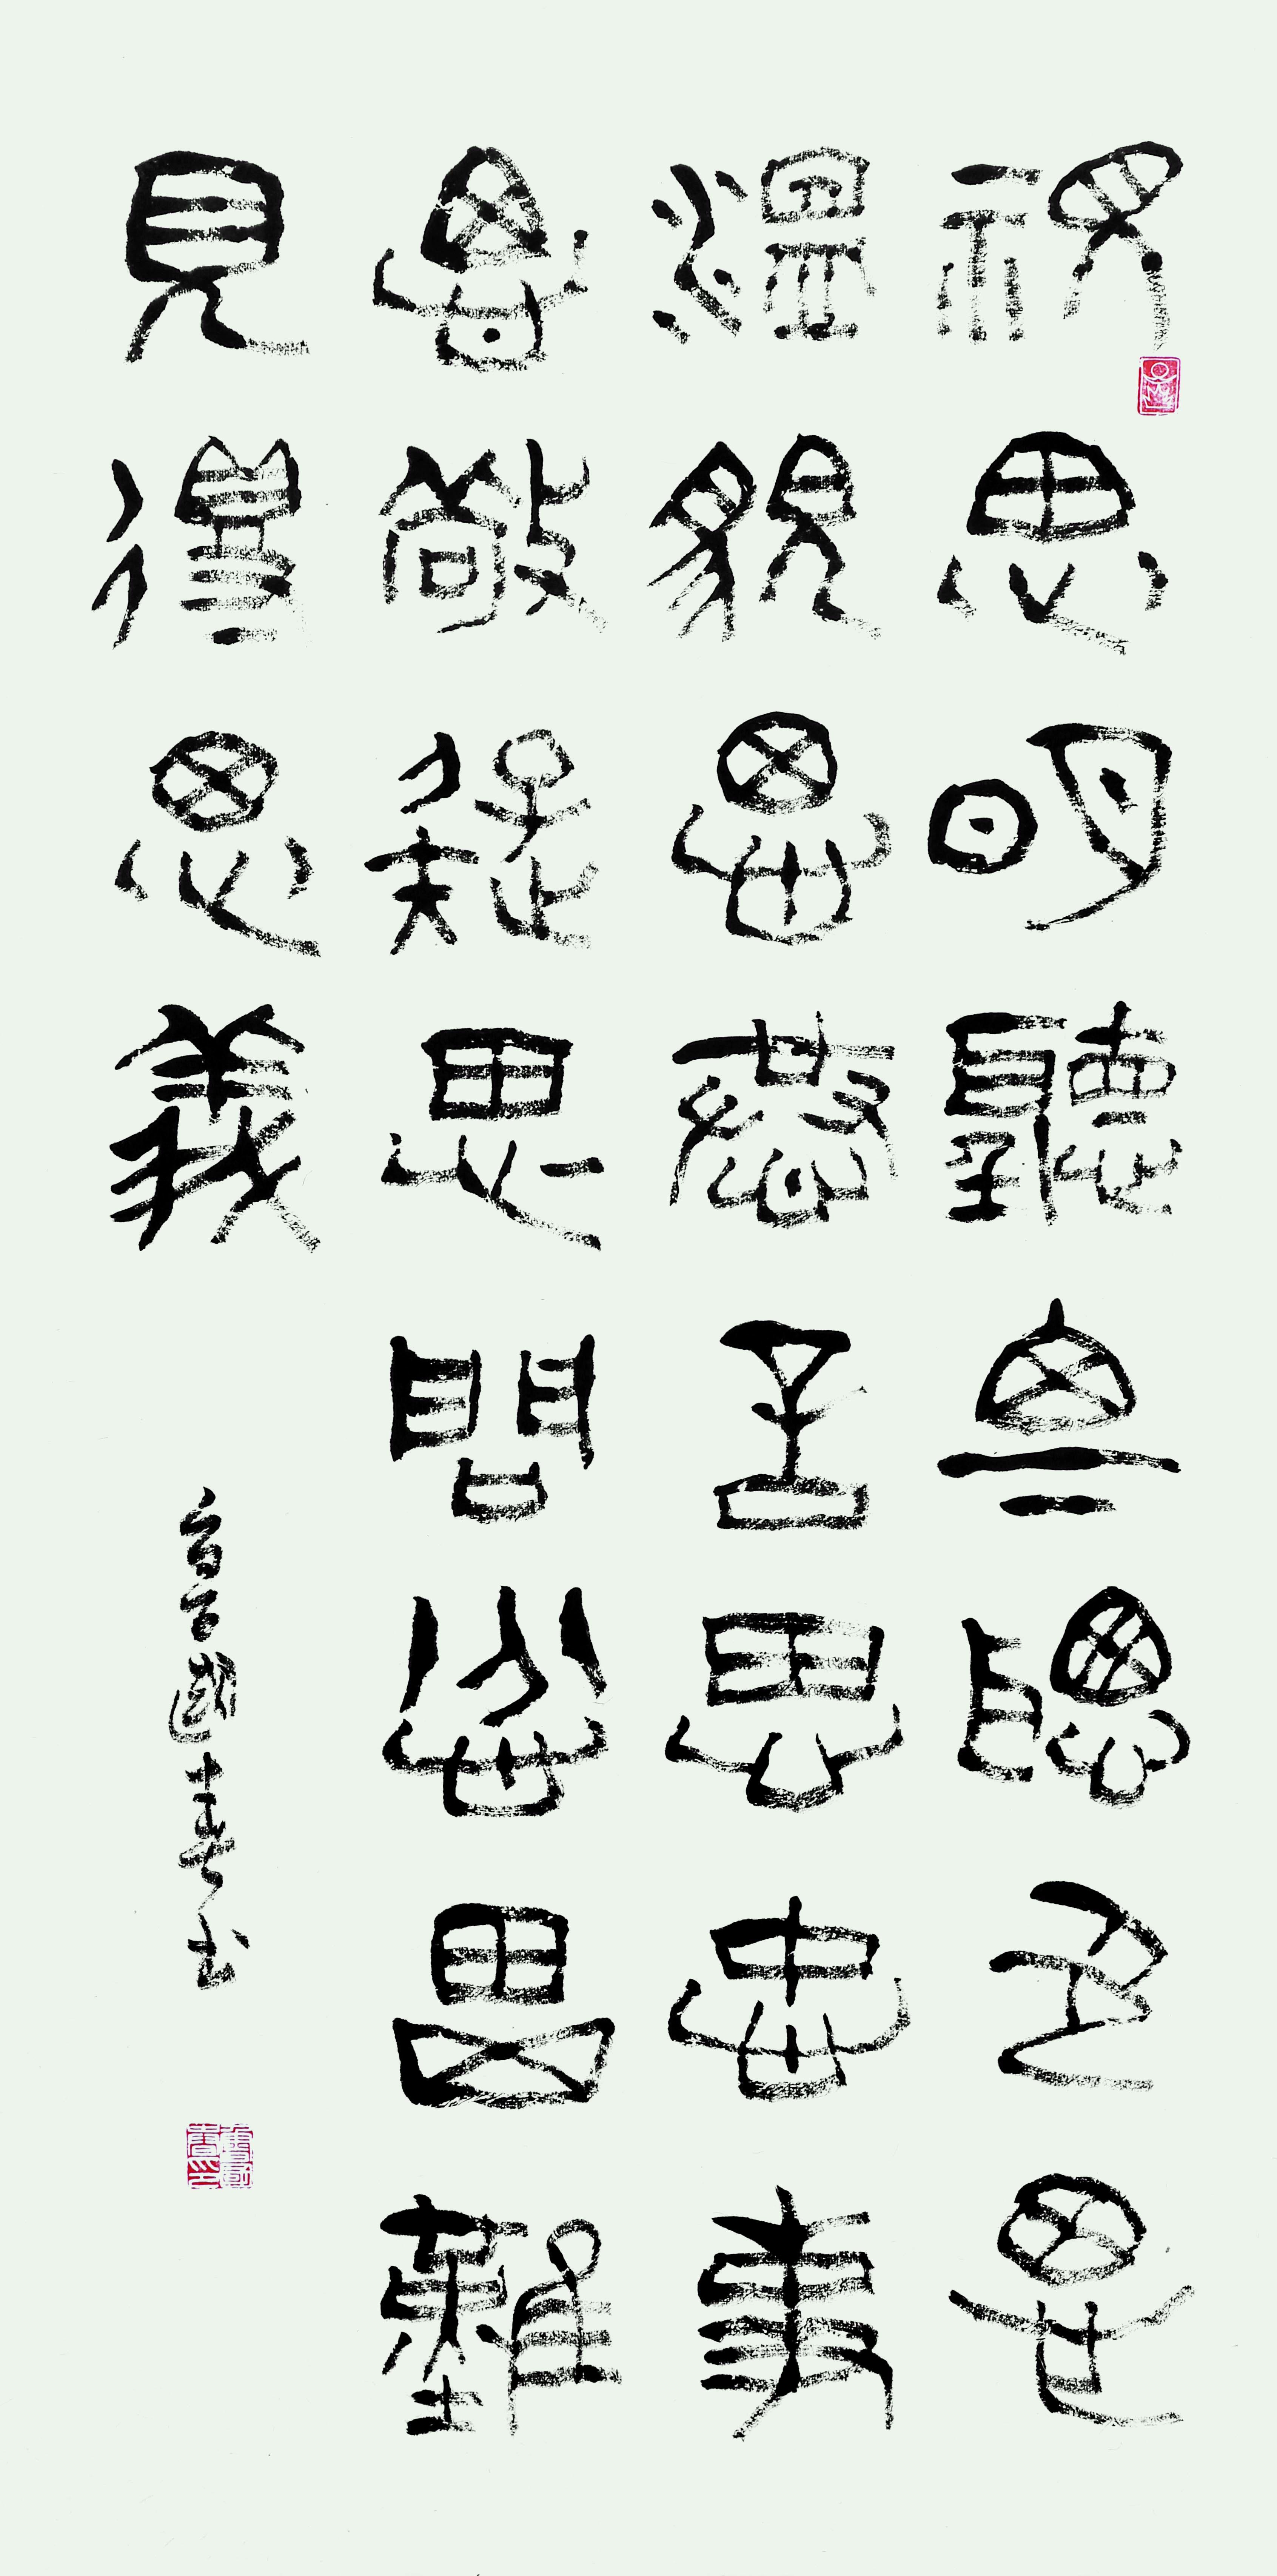 視思明聽思聰色思
溫貌思恭言思忠事
思敬疑思問忿思難
見得思義
春书